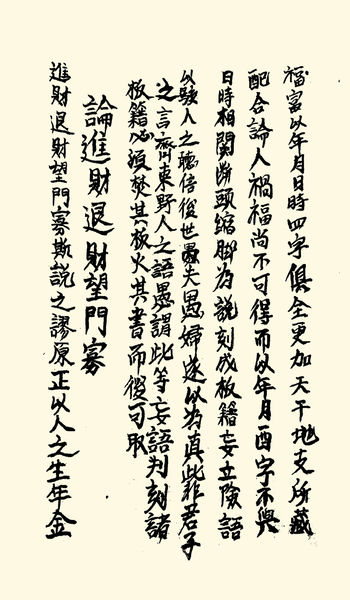 福富以年月日時四字俱全更加天干地支所藏
配合論人禍福尚不可得而以年月酉字不與
日時相関斷頭縮脚為說刻成板籍妄立險語
以駭人之聽倍後世愚夫愚婦遂以為真此非君子
之言齊東野人之語愚謂此等妄語判刻諸
板籍必須焚其板火其書而後可取
論進財退財望門寡
進財退財望門寡斯說之謬原正以人之生年金